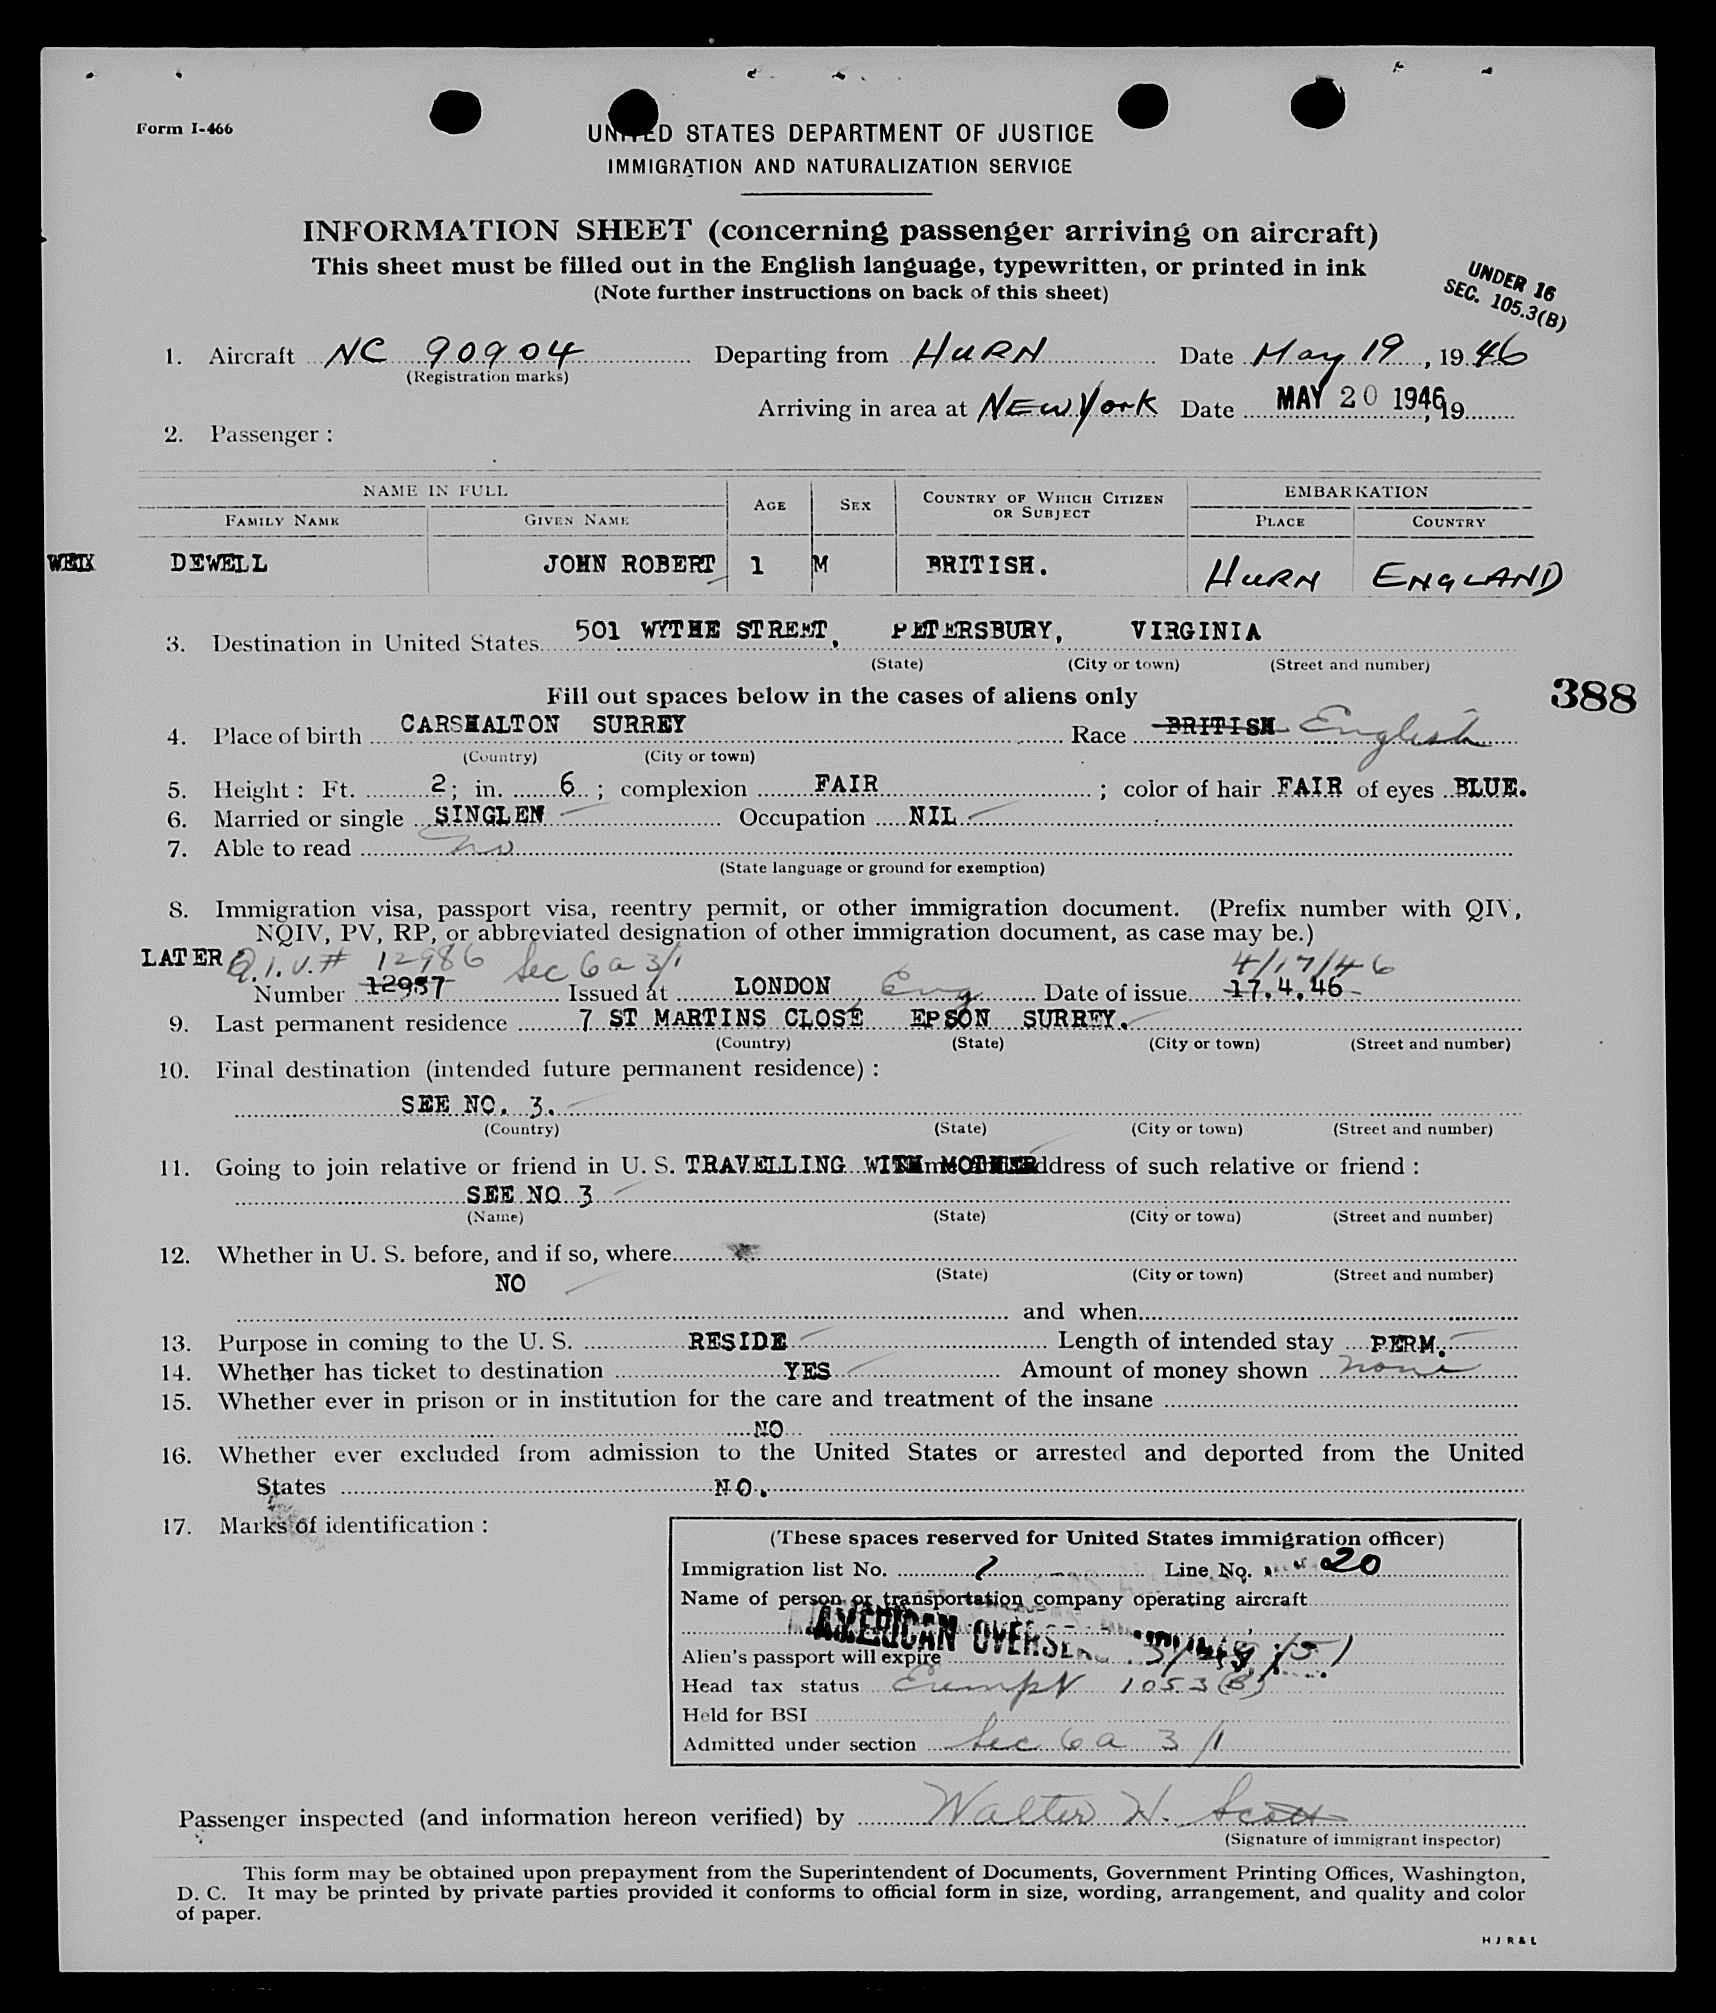 Form I-466
UNITED STATES DEPARTMENT OF JUSTICE
IMMIGRATION AND NATURALIZATION SERVICE
INFORMATION SHEET (concerning passenger arriving on aircraft)
This sheet must be filled out in the English language, typewritten, or printed in ink
(Note further instructions on back of this sheet)
UNDER 16
SEC. 105.3(B)
1. Aircraft NC 90904 Departing from HURN Date May 19, 1946
(Registration marks)
Arriving in area at NEW York Date MAY 20 1946, 19
2. Passenger :
NAME IN FULL AGE SEX COUNTRY OF WHICH CITIZEN OR SUBJECT EMBARKATION
FAMILY NAME GIVEN NAME PLACE COUNTRY
DEWELL JOHN ROBERT 1 M BRITISH. HURN ENGLAND
3. Destination in United States 501 WYTHE STREET, PETERSBURY, VIRGINIA
(State) (City or town) (Street and number)
Fill out spaces below in the cases of aliens only
388
4. Place of birth CARSHALTON SURREY Race BRITISH English
(Country) (City or town)
5. Height : Ft. 2 ; in. 6 ; complexion FAIR ; color of hair FAIR of eyes BLUE.
6. Married or single SINGLEN Occupation NIL
7. Able to read no
(State language or ground for exemption)
8. Immigration visa, passport visa, reentry permit, or other immigration document. (Prefix number with QIV,
NQIV, PV, RP, or abbreviated designation of other immigration document, as case may be.)
LATER Q.I.V.# 12986 Sec 6a 3/1 4/17/46
Number 12987 Issued at LONDON Eng Date of issue 17.4.46
9. Last permanent residence 7 ST MARTINS CLOSE EPSON SURREY.
(Country) (State) (City or town) (Street and number)
10. Final destination (intended future permanent residence) :
SEE NO. 3.
(Country) (State) (City or town) (Street and number)
11. Going to join relative or friend in U. S. TRAVELLING WITH MOTHER address of such relative or friend :
SEE NO 3
(Name) (State) (City or town) (Street and number)
12. Whether in U. S. before, and if so, where
NO
(State) (City or town) (Street and number)
and when
13. Purpose in coming to the U. S. RESIDE Length of intended stay PERM.
14. Whether has ticket to destination YES Amount of money shown none
15. Whether ever in prison or in institution for the care and treatment of the insane
NO
16. Whether ever excluded from admission to the United States or arrested and deported from the United
States NO.
17. Marks of identification :
(These spaces reserved for United States immigration officer)
Immigration list No. 1 Line No. 20
Name of person or transportation company operating aircraft
AMERICAN
Alien's passport will expire
Head tax status Exempt 105.3(B)
Held for BSI
Admitted under section Sec 6a 3/1
Passenger inspected (and information hereon verified) by Walter H. Scott
(Signature of immigrant inspector)
This form may be obtained upon prepayment from the Superintendent of Documents, Government Printing Offices, Washington,
D. C. It may be printed by private parties provided it conforms to official form in size, wording, arrangement, and quality and color
of paper.
H J R & L